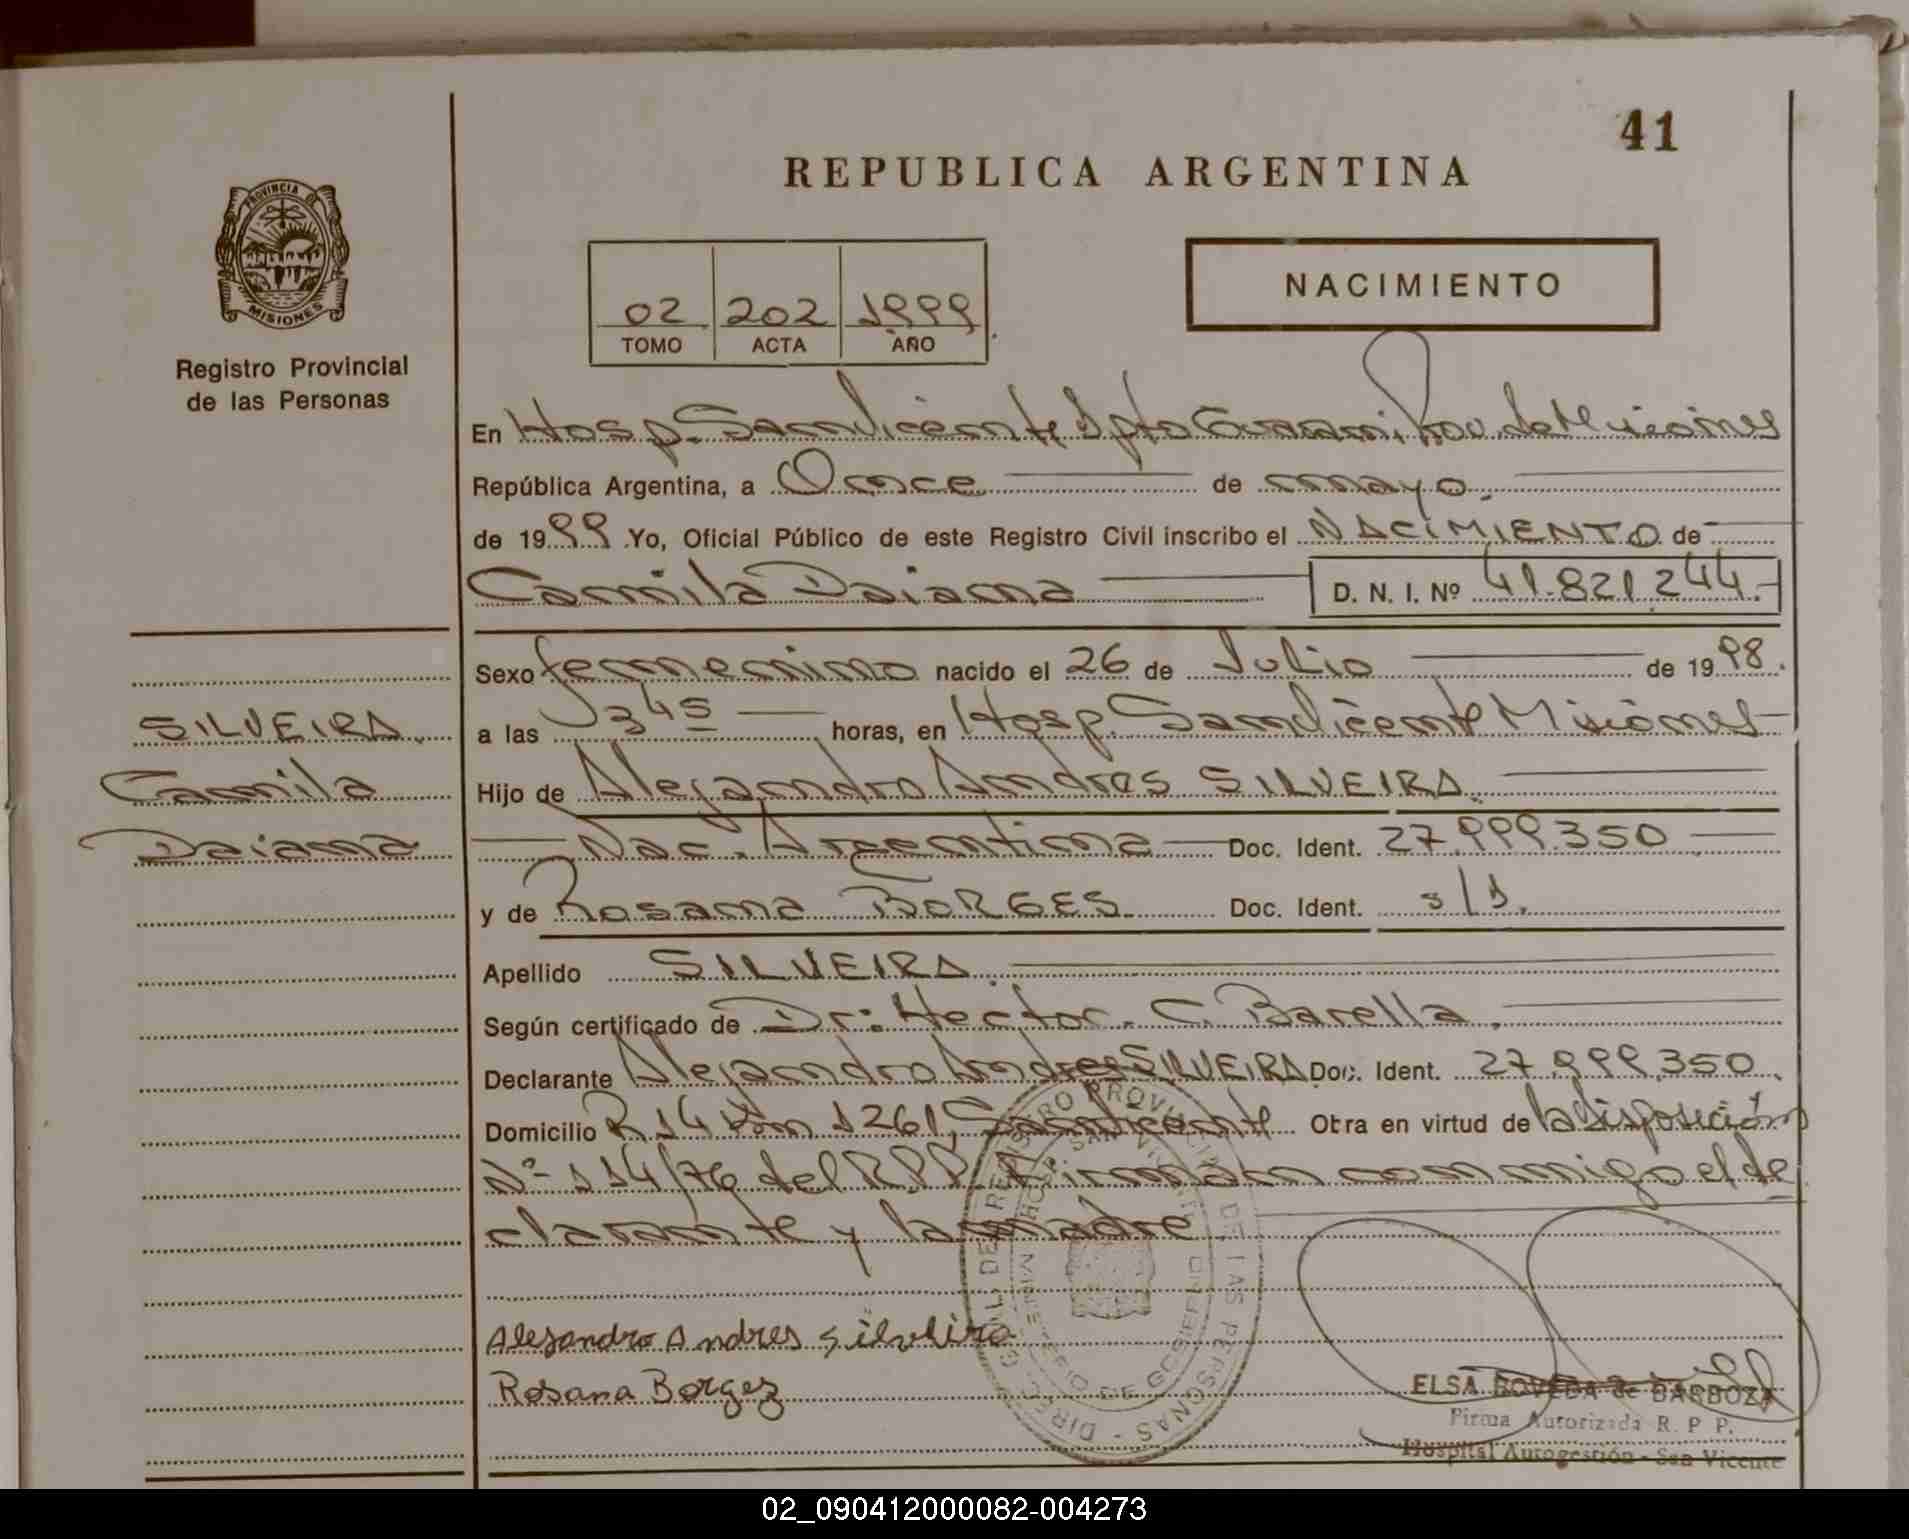 41
REPUBLICA ARGENTINA
PROVINCIA DE
MISIONES
Registro Provincial
de las Personas
NACIMIENTO
02 202 1999
TOMO ACTA AÑO
En Hosp. San Vicente Dpto Guarani, Prov. de Misiones
República Argentina, a Once de mayo.
de 1999 Yo, Oficial Público de este Registro Civil inscribo el NACIMIENTO de
Camila Daiana D. N. I. Nº 41.821.244.-
Sexo femenino nacido el 26 de Julio de 1998.
a las horas, en Hosp. San Vicente Misiones
SILVEIRA
Camila
Daiana
Hijo de Alejandro Andres SILVEIRA.
Nac. Argentina Doc. Ident. 27.999.350
y de Rosana BORGES Doc. Ident. s/d.
Apellido SILVEIRA.
Según certificado de Dr: Hector. C. Barella.
Declarante Alejandro Andres SILVEIRA Doc. Ident. 27.999.350.
Domicilio R 14 Km 1261, San Vicente Otra en virtud de la disposición
Nº 114/76 del R.P.P. Firman conmigo el de
clarante y la madre
Alejandro Andres Silveira
Rosana Borgez
ELSA BOVEDA de BARBOZA
Firma Autorizada R. P. P.
Hospital Autogestión - San Vicente
DIRECCION GRAL DE REGISTRO PROVINCIAL DE LAS PERSONAS -
MINISTERIO DE GOBIERNO
02_090412000082-004273